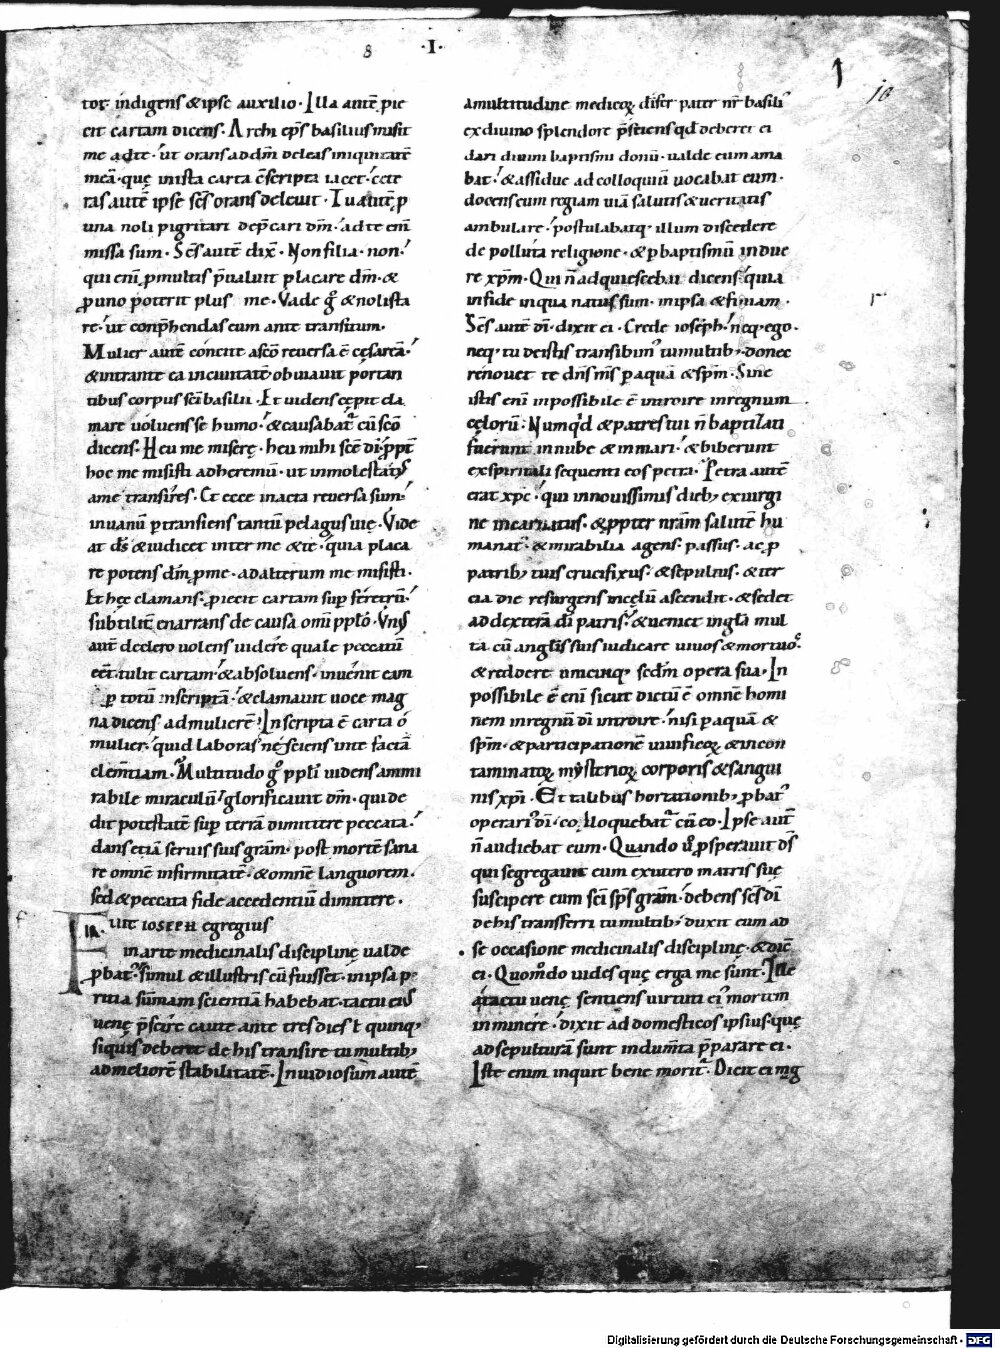 8 ·I· 1 10
tor indigens & ipse auxilio· Illa autē pie
cit cartam dicens· Archi ep̄s basilius misit
me ad te· ut orans ad dm̄ deleas iniquitatē
meā· quę in ista carta ē scripta iacet· cete
ras autē ipse sc̄s orans deleuit· Tu autē p̄
una noli pigritari dep̄cari dm̄· ad te eni̅
missa sum· Sc̄s autē dix̄· Non filia· non·
qui eni̅ ꝓ multis p̄ualuit placare dm̄· &
ꝓ uno poterit plus me· Vade gͦ & noli sta
re· ut conp̄hendas eum ante transitum·
Mulier autē concite a sc̄o reuersa ē cesareā·
& intrante ea in ciuitatē obuiauit portan
tibus corpus sc̄i basilii· Et uidens cępit cla
mare uoluens se humo· & causabat᷒ cū sc̄o
dicens· Heu me miserę· heu mihi sc̄e di· p̄pt̄
hoc me misisti ad heremū· ut in molestatus
a me transires· Et ecce inacta reuersa sum·
in uanū ꝑtransiens tantū pelagus uię· Vide
at ds̄ & iudicet inter me & te· quia placa
re potens dm̄ ꝓ me· ad alterum me misisti·
Et hęc clamans· ꝓiecit cartam suꝑ feretrū·
subtilit̄ enarrans de causa omi̅ pplo̅· Vnus
aut̄ de clero uolens uidere quale peccatū
eēt· tulit cartam· & absoluens· inuenit eam
ꝑ totū inscriptā· & clamauit uoce mag
na dicens ad mulierē· Inscripta ē carta o
mulier· quid laboras nesciens in te factā
clem̄tiam· Multitudo gͦ ppl̅i uidens ammi
rabile miraculū· glorificauit dm̄· qui de
dit potestatē suꝑ terrā dimittere peccata·
dans etiā seruis suis grām· post mortē sana
re omnē infirmitatē· & omnē languorem·
sed & peccata fide accedentiū dimittere·
Fuit ioseph egregius
in arte medicinalis disciplinę ualde
ꝓbat᷒· simul & illustris cū fuisset· in ipsa pe
ritia summam scientiā habebat· tactu eius
uenę p̄scire caute ante tres dies ł quinq;
siquis deberet de his transire tumultib;
ad meliorē stabilitatē· In uidiosum autē
a multitudine medicoꝝ dister pater nr̄ basili᷒
ex diuino splendore p̄sciens qd̄ deberet ei
dari diuini baptismi donū· ualde eum ama
bat· & assidue ad colloquiū uocabat eum·
docens eum regiam uiā salutis & ueritatis
ambulare· postulabatq; illum discedere
de polluta religione· & ꝑ baptismū indue
re xpm̄· Qui n̄ adquiescebat dicens· quia
in fide in qua natus sum· in ipsa & finiam·
Sc̄s autē di̅· dixit ei· Crede ioseph· neq; ego·
neq; tu de istis transibim᷒ tumultib;· donec
renouet te dn̄s m̄s ꝑ aquā & spm̄· Sine
istis eni̅ inpossibile ē introire in regnum
cęlorū· Numqd̄ & patres tui n̄ baptizati
fuerunt in nube & in mari· & biberunt
ex spiritali sequenti eos petra· Petra autē
erat xpc̄· qui in nouissimis dieb; ex uirgi
ne incarnatus· & ꝓpter nrām salutē hu
manat᷒· & mirabilia agens· passus· ac ꝓ
patrib; tuis crucifixus· & sepultus· & ter
cia die resurgens in cęlū ascendit· & sedet
ad dexterā di̅ patris· & ueniet in glā mul
ta cū angl̄is suis iudicare uiuos & mortuos·
& reddere unicuiq; scdm̄ opera sua· In
possibile ē eni̅ sicut dictū ē omnē homi
nem in regnū di̅ introire· nisi ꝑ aquā &
spm̄· & participationē uiuificoꝝ & incon
taminatoꝝ mysterioꝝ corporis & sangui
nis xp̄i· Et talibus hortationib; ꝓbat᷒
operari᷒ di̅· colloquebat᷒ cū eo· Ipse aut̄
n̄ audiebat eum· Quando uͦ ꝓsperauit ds̄
qui segregauit eum ex utero matris suę
suscipere eum sc̄i sp̄s grām· debens sc̄s di̅
de his transferri tumultib;· duxit eum ad
se occasione medicinalis disciplinę· & dic̄
ei· Quom̄do uides quę erga me sunt· Ille
a tactu uenę sentiens uirtuti ei᷒ mortem
inminere· dixit ad domesticos ipsius· quę
ad sepulturā sunt indum̄ta p̄parare ei·
Iste enim inquit bene morit᷒· Dicit ei mag
Digitalisierung gefördert durch die Deutsche Forschungsgemeinschaft · DFG